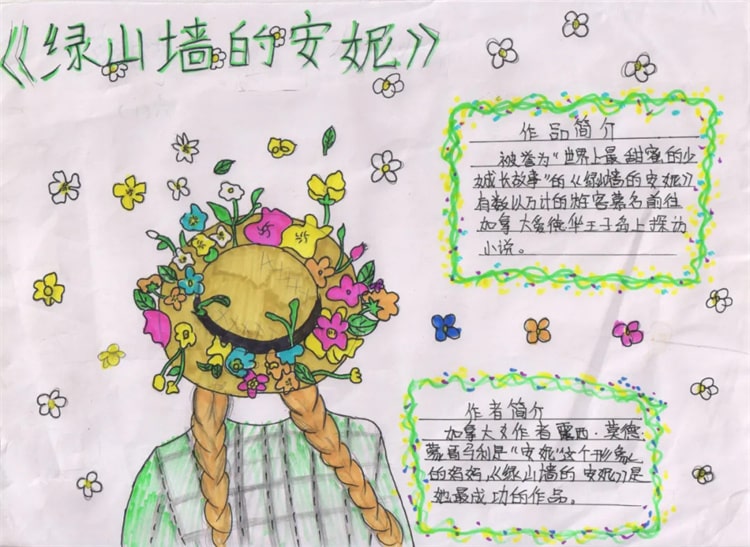 《绿山墙的安妮》
作品简介
被誉为"世界上最甜蜜的少
女成长故事"的《绿山墙的安妮》,
有数以万计的游客慕名前往
加拿大爱德华王子岛上探访
小说。
作者简介
加拿大女作者露西·莫德·
蒙哥马利是"安妮"这个形象
的妈妈,《绿山墙的安妮》是
她最成功的作品。